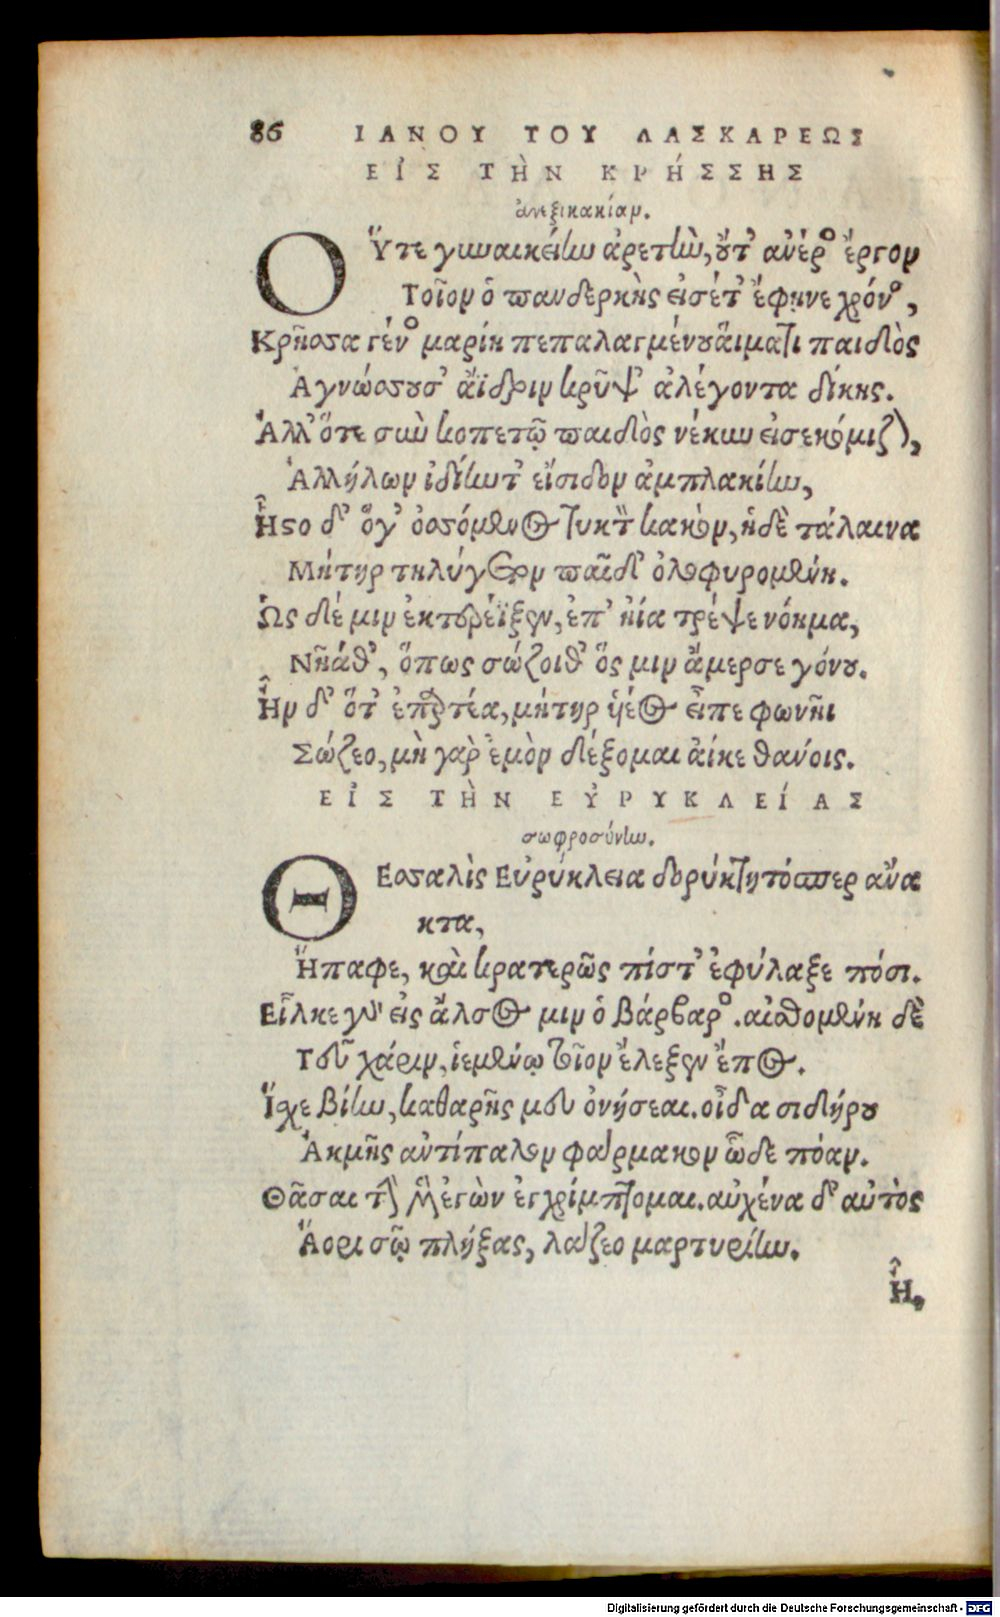 86 ΙΑΝΟΥ ΤΟΥ ΛΑΣΚΑΡΕΩΣ
ΕἸΣ ΤῊΝ ΚΡΉΣΣΗΣ
ἀνεξικακίαν.
ΟὝτε γυναικείην ἀρετὴν, οὔτ' ἀνέρος ἔργον
Τοῖον ὁ πανδερκὴς εἰσέτ' ἔφηνε χρόνος,
Κρῆσσα γένος μαρίη πεπαλαγμένου αἵματι παιδὸς
Ἀγνώσσουσ' ἄϊδριν κρῦψ' ἀλέγοντα δίκης.
Ἀλλ' ὅτε σὺν κοπετῷ παιδὸς νέκυν εἰσεκόμιζον,
Ἀλλήλων ἰδίην τ' εἴσιδον ἀμπλακίην,
Ἧστο δ' ὅγ' ὀσσόμενος κακὸν, ἠδὲ τάλαινα
Μήτηρ τηλύγετον παῖδ' ὀλοφυρομένη.
Ὡς δέ μιν ἐκτουρέϊξεν, ἐπ' ἠΐα τρέψε νόημα,
Νηάθ', ὅπως σώζοιθ' ὅς μιν ἄμερσε γόνου.
Ἦν δ' ὅτ' μήτηρ εἶπε φωνῆι
Σώζεο, μὴ γὰρ ἐμὸν δέξομαι αἴκε θάνοις.
ΕἸΣ ΤῊΝ ΕὙΡΥΚΛΕΊΑΣ
σωφροσύνην.
ΘΕσσαλὶς Εὐρύκλεια δορύκτητόσπερ ἄνα
κτα,
Ἤπαφε, καὶ κρατερῶς πίστ' ἐφύλαξε πόσι.
Εἷλκε γὰρ εἰς ἄλσος μιν ὁ βάρβαρος. αἰσθομένη δὲ
Τοῦ χάριν, ἱεμένῳ τοῖον ἔλεξεν ἔπος.
Ἴσχε βίην, καθαρῆς μου ὀνήσεαι. οἶδα σιδήρου
Ἀκμῆς ἀντίπαλον φάρμακον ὧδε πόαν.
Θᾶσαι ἐγὼν ἐγχρίμπτομαι. αὐχένα δ' αὐτὸς
Ἄορι σῷ πλήξας, λάζεο μαρτυρίην.
Ἦ,
Digitalisierung gefördert durch die Deutsche Forschungsgemeinschaft - DFG